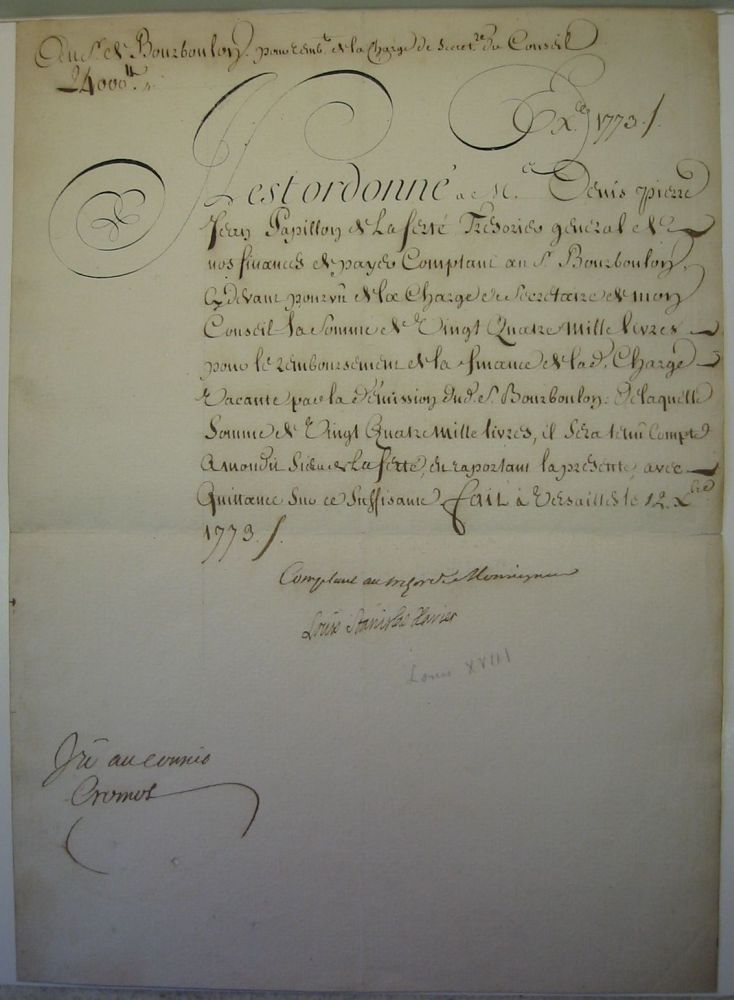 Au S.r de Bourboulon pour remb.t de la Charge de Secret.re du Conseil
24000.tt
Ex.ce 1773 /.
Il est ordonné a M.e Denis pierre
Jean Papillon de La ferté Trésorier général de
nos finances de payer Comptant au S.r Bourboulon
Cy devant pourvû de la Charge de Secretaire de mon
Conseil la Somme de Vingt Quatre mille livres
pour le remboursement de la finance de la d. Charge
Vacante par la démission dud. S. Bourboulon. De laquelle
Somme de Vingt Quatre mille livres, il Sera tenu Compte
A mondit Sieur de La ferté, en raportant la présente avec
Quittance Sur ce Suffisante. fait à Versailles le 12. X.bre
1773 /.
Comptant au trésor de Monseigneur
Louis Stanislas Xavier
Louis XVIII
Vû au
Cromot